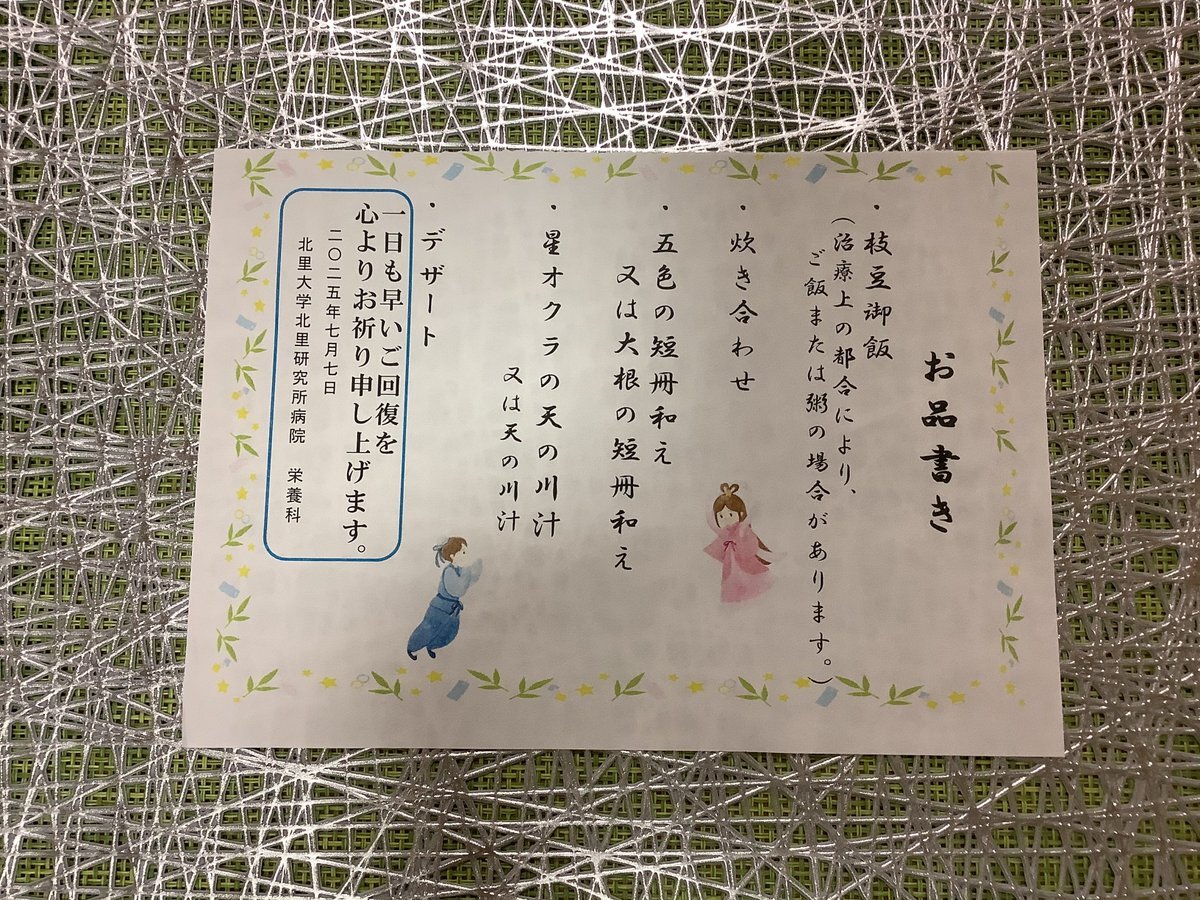 お品書き
・枝豆御飯
(治療上の都合により、
ご飯または粥の場合があります。)
・炊き合わせ
・五色の短冊和え
又は大根の短冊和え
・星オクラの天の川汁
又は天の川汁
・デザート
一日も早いご回復を
心よりお祈り申し上げます。
二〇二五年七月七日
北里大学北里研究所病院 栄養科